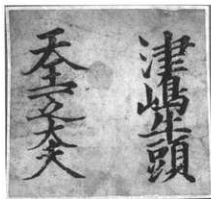 津嶋牛頭
天王大夫